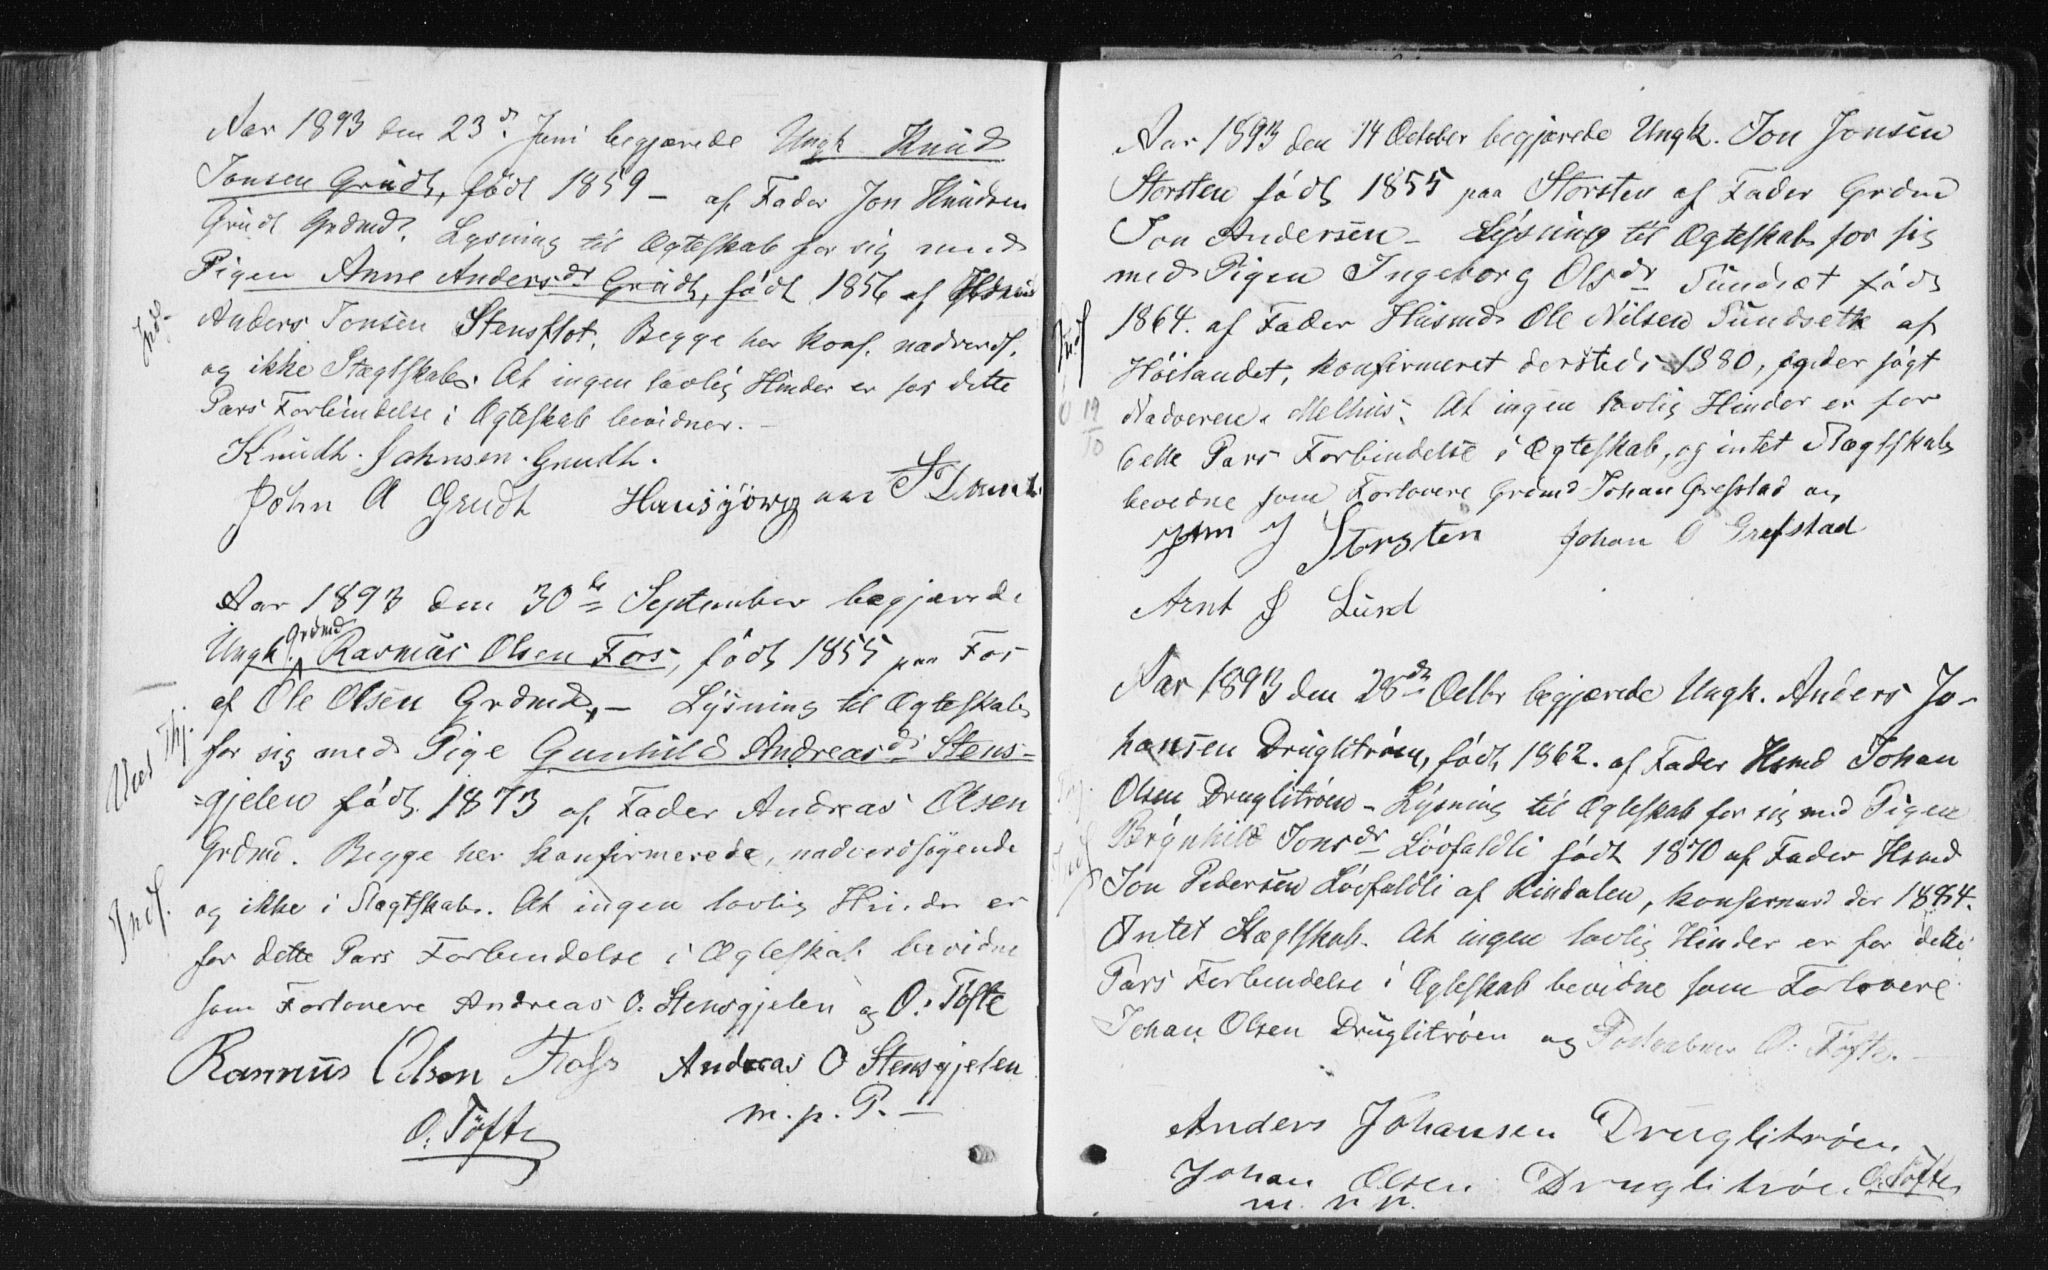 Aar 1893 den 23d. Juni begjærede Ungk Knud
Jonsen Grudt, født 1859 – af Fader Jon Knudsen
Grudt Grdmd. Lysning til Ægteskab for sig med
Pigen Anne Andersdr Grudt, født 1856 af
Anders Jonsen Stensflot. Begge her konf. nadverds.
og ikke Slægtskab. At ingen lovlig Hinder er for dette
Pars Forbindelse i Ægteskab bevidner. –
Knudh. Johnsen. Grudh.
John A Grudt
Indf.
Aar 1893 den 30te September begjærede
Ungk. Grdmd Rasmus Olsen Fos, født 1855 paa Fos
af Ole Olsen Grdmd, – Lysning til Ægteskab
for sig med Pige Gunhild Andreasdr Stens=
=gjelen født 1873 af Fader Andreas Olsen
Grdmd. Begge her konfirmerede, nadverdsøgende
og ikke i Slægtskab. At ingen lovlig Hinder er
for dette Pars Forbindelse i Ægteskab bevidne
som Forlovere Andreas O. Stensgjelen og O. Tøfte
Rasmus Olsen Foss Andreas O Stensgjelen
m. p. P. –
O. Tøfte
Indf.
Aar 1893 den 14 October begjærede Ungk. Jon Jonsen
Storsten født 1855 paa Storsten af Fader Grdmd
Jon Andersen – Lysning til Ægteskab for sig
med Pigen Ingeborg Olsdr Sundset født
1864. af Fader Husmd Ole Nilsen Sundseth af
Høilandet, konfirmeret dersteds 1880, søgt
Nadveren i Melhus. At ingen lovlig Hinder er for
dette Pars Forbindelse i Ægteskab, og intet Slægtskab
bevidne som Forlovere Grdmd Johan Grefstad og
John J Storsten Johan O Grefstad
Arnt J Lund
Indf
19/10
Aar 1893 den 28de Octbr begjærede Ungk. Anders Jo-
hansen Druglitrøen, født 1862. af Fader Hsmd Johan
Olsen Druglitrøen – Lysning til Ægteskab for sig med Pigen
Brynhild Jonsdr Løvfaldli født 1870 af Fader Hsmd
Jon Pedersen Løvfaldli af Rindalen, konfirmered der 1884.
Intet Slægtskab. At ingen lovlig Hinder er for dette
Pars Forbindelse i Ægteskab bevidne som Forlovere
Johan Olsen Druglitrøen og O. Tøfte. –
Anders Johansen Druglitrøen
Johan Olsen Druglitrøen O. Tøfte
m. p. p.